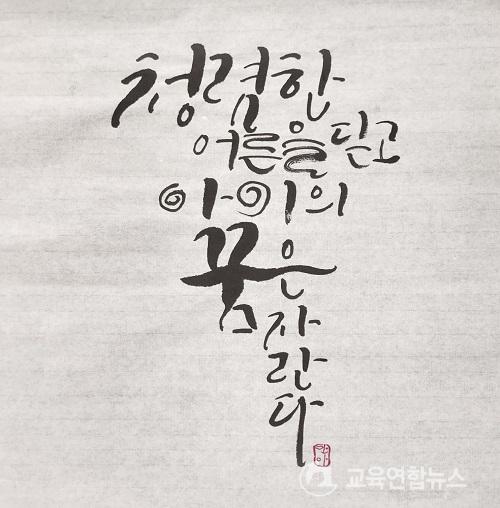 청렴한
어른을 딛고
아이의
꿈은
자
란
다
교육연합뉴스